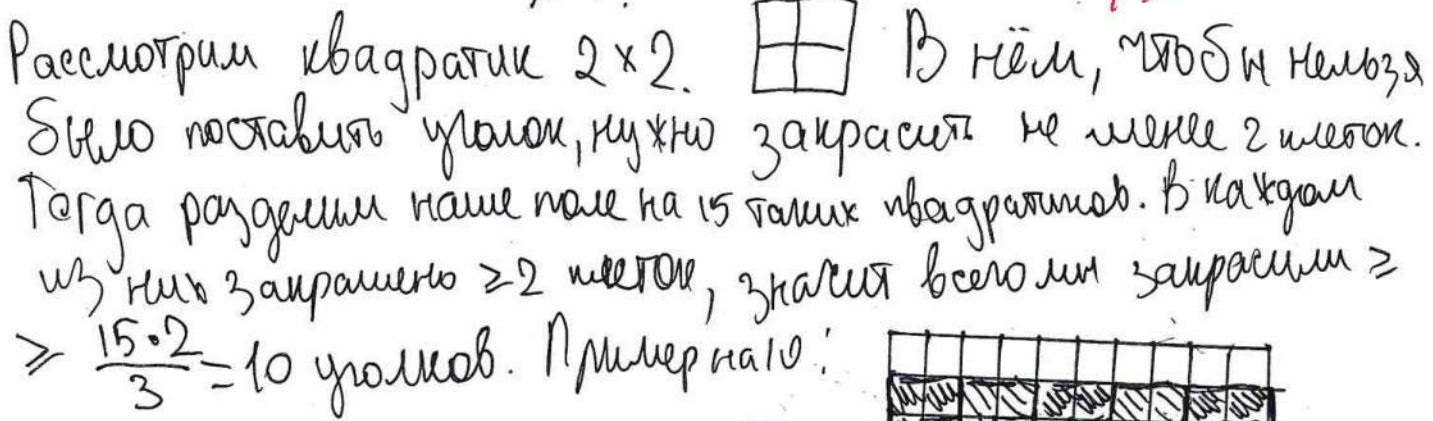 Рассмотрим квадратик 2×2. В нём, чтобы нельзя
было поставить уголок, нужно закрасить не менее 2 клеток.
Тогда разделим наше поле на 15 таких квадратиков. В каждом
из них закрашено ≥2 клеток, значит всего мы закрасили ≥
≥ 15•2/3 = 10 уголков. Пример на 10: